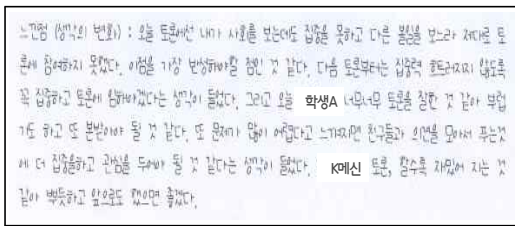 느낀점 (생각의 변화) : 오늘 토론에선 내가 사회를 보는데도 집중을 못하고 다른 볼일을 보느라 제대로 토
론에 참여하지 못했다. 이점을 가장 반성해야할 점인 것 같다. 다음 토론부터는 집중력 흐트러지지 않도록
꼭 집중하고 토론에 임해야겠다는 생각이 들었다. 그리고 오늘 학생A 너무너무 토론을 잘한 것 같아 부럽
기도 하고 또 본받아야 될 것 같다. 또 문제가 많이 어렵다고 느껴지면 친구들과 의견을 모아서 푸는것
에 더 집중을하고 관심을 두어야 될 것 같다는 생각이 들었다. K메신 토론, 할수록 재밌어 지는 것
같아 뿌듯하고 앞으로도 했으면 좋겠다.